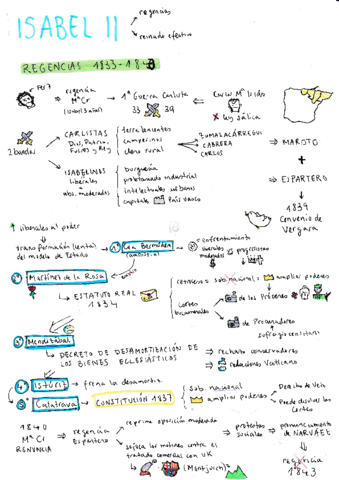 ISABEL II
regencias
reinado efectivo
REGENCIAS 1833-18
Fer 7
regencia
Mª Cr
1ª Guerra Carlista
33 39
Carlos Mª Isidro
ley sálica
2 bandos
CARLISTAS
Dios, Patria,
Fueros y Rey
terratenientes
campesinos
clero rural
ZUMALACÁRREGUI
CABRERA
CARLOS
MAROTO
+
ESPARTERO
1839
Convenio de
Vergara
ISABELINOS
liberales
abs. moderados
burguesía
proletariado industrial
intelectuales urbanos
capitales País Vasco
liberales al poder
transformación (lenta)
del modelo de Estado
1º Cea Bermúdez
enfrentamiento
liberales vs progresistas
moderados
2º Martínez de la Rosa
ESTATUTO REAL
1834
sob. nacional
ampliar poderes
Cortes
bicamerales
de los Próceres
de Procuradores
sufragio censitario
3º Mendizábal
DECRETO DE DESAMORTIZACIÓN DE
LOS BIENES ECLESIÁSTICOS
rechazo conservadores
relaciones Vaticano
4º Istúriz
frena la desamortiz.
5º Calatrava
CONSTITUCIÓN 1837
sob. nacional
ampliar poderes
Derecho de Veto
Puede disolver las
Cortes
1840
Mª Cr
RENUNCIA
regencia
Espartero
reprime oposición moderada
sofoca los motines contra el
tratado comercial con UK
(Montjuïch)
protestas
sociales
pronunciamiento
de NARVÁEZ
regencia
1843